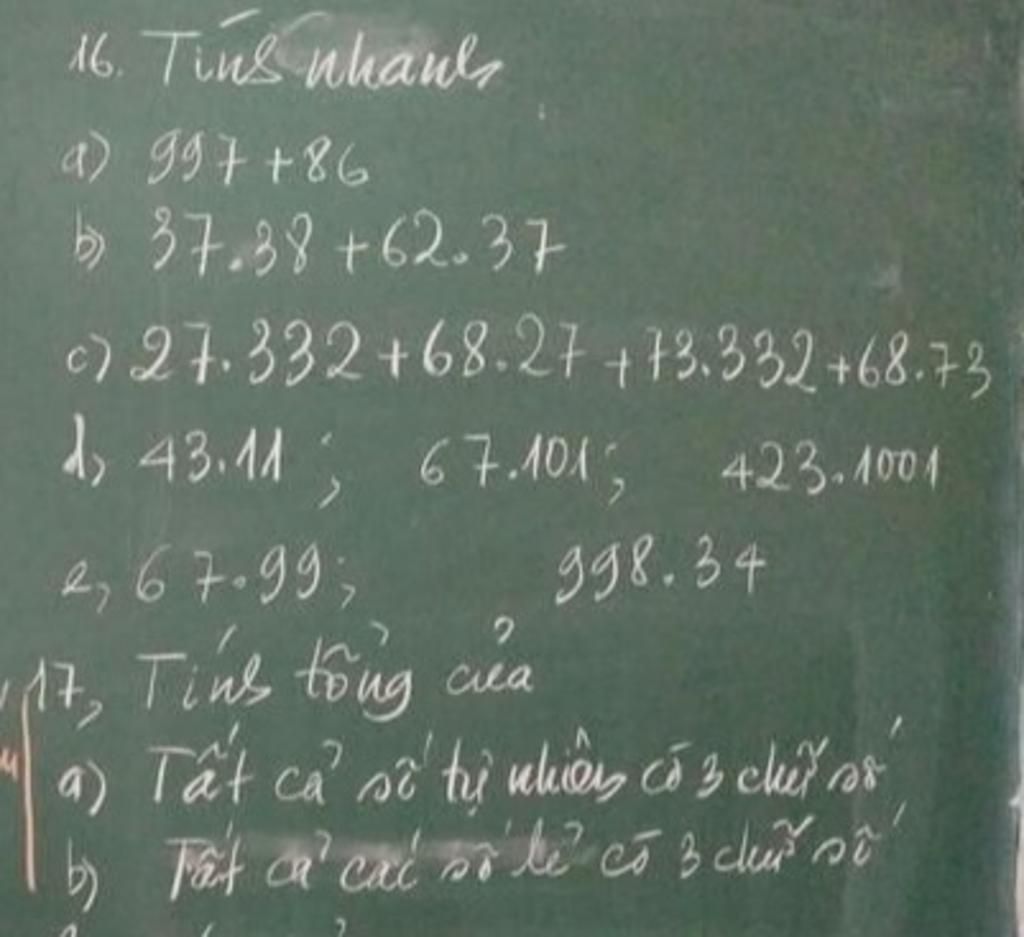 16. Tính nhanh
a) 997 + 86
b) 37.38 + 62.37
c) 27.332 + 68.27 + 73.332 + 68.73
d, 43.11 ; 67.101 ; 423.1001
e, 67.99 ; 998.34
17, Tính tổng của
a) Tất cả số tự nhiên có 3 chữ số
b) Tất cả các số lẻ có 3 chữ số